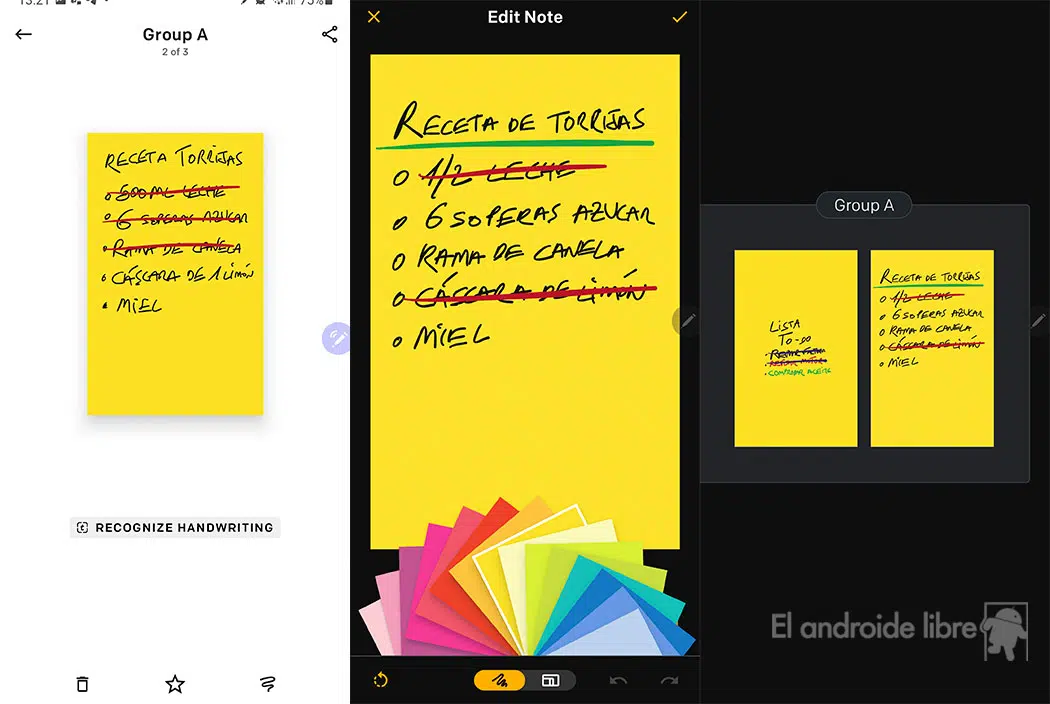 13:21
75%
Group A
2 of 3
RECETA TORRIJAS
500ML LECHE
6 SOPERAS AZUCAR
RAMA DE CANELA
CÁSCARA DE 1 LIMÓN
MIEL
RECOGNIZE HANDWRITING
Edit Note
RECETA DE TORRIJAS
1/2 LECHE
6 SOPERAS AZUCAR
RAMA DE CANELA
CÁSCARA DE LIMÓN
MIEL
Group A
LISTA
TO-DO
COMPROBAR ACEITE
RECETA DE TORRIJAS
1/2 LECHE
6 SOPERAS AZUCAR
RAMA DE CANELA
CÁSCARA DE LIMÓN
MIEL
El androide libre